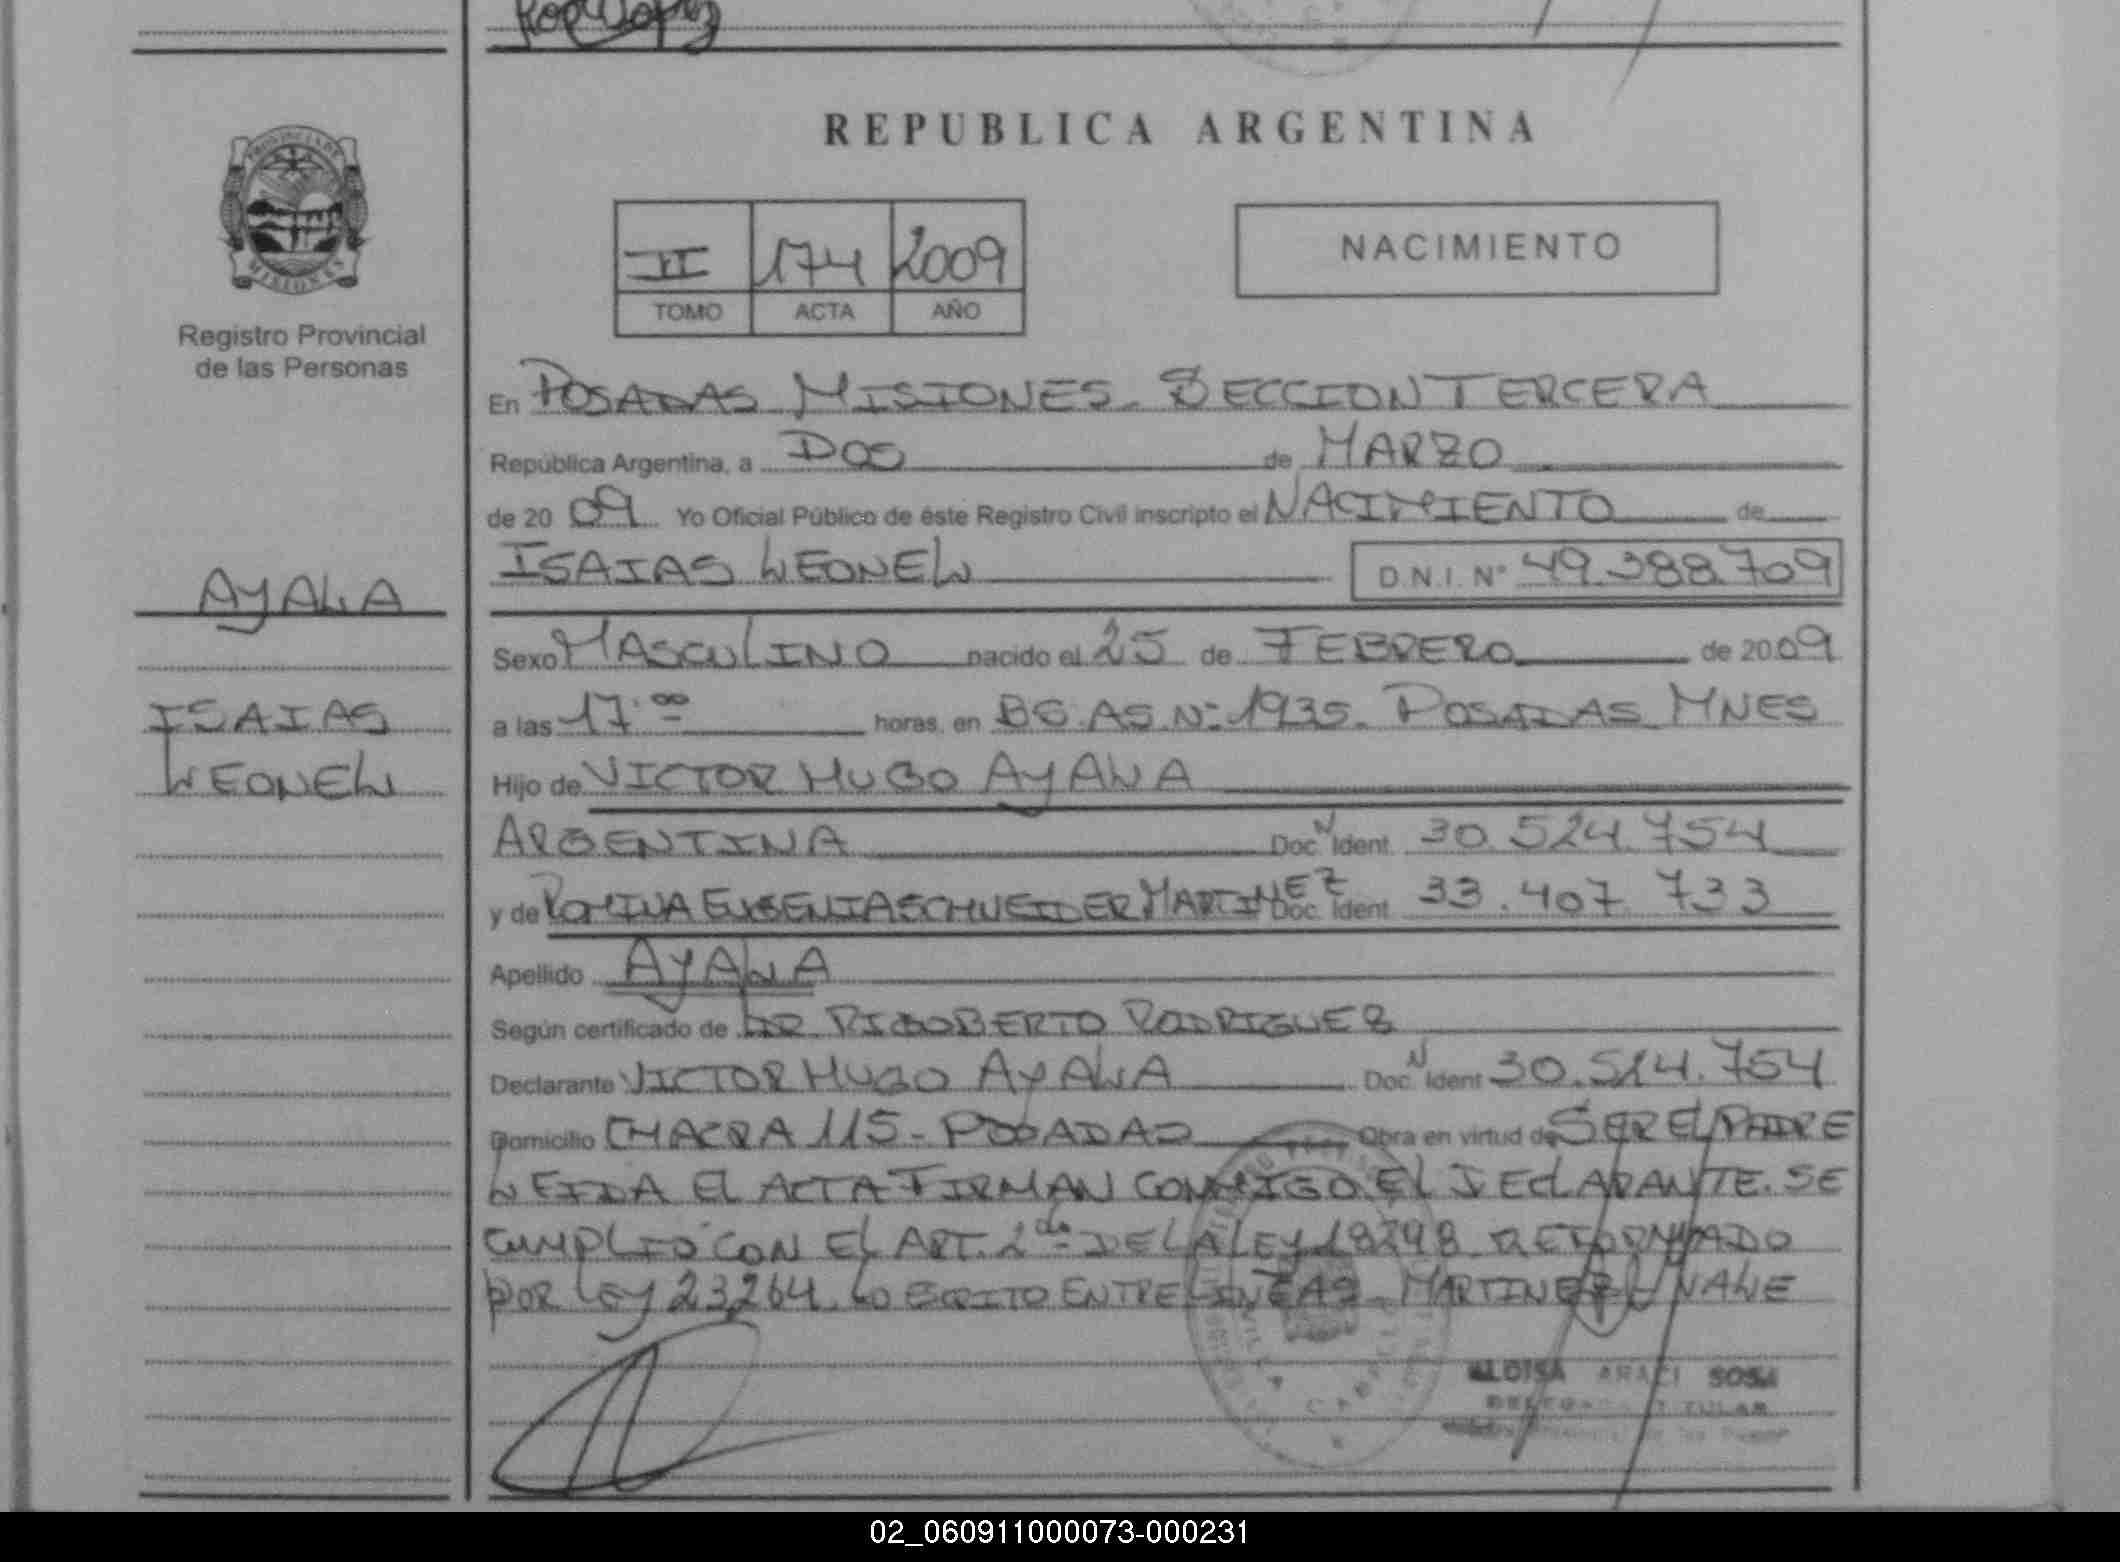 REPUBLICA ARGENTINA
PROVINCIA DE
MISIONES
Registro Provincial
de las Personas
II 174 2009
TOMO ACTA AÑO
NACIMIENTO
En POSADAS MISIONES. SECCION TERCERA
República Argentina, a DOS de MARZO
de 2009 Yo Oficial Público de éste Registro Civil inscripto el NACIMIENTO de
ISAIAS LEONEL D.N.I. N° 49.388.709
AYALA
Sexo MASCULINO nacido el 25 de FEBRERO de 2009
ISAIAS
LEONEL
a las 17:00 horas, en BS.AS. N° 1935. POSADAS MNES
Hijo de VICTOR HUGO AYALA
ARGENTINA Doc N Ident. 30.524.754
y de ROMINA EUGENIA SCHNEIDER MARTINEZ Doc. Ident. 33.407.733
Apellido AYALA
Según certificado de DR RIGOBERTO RODRIGUEZ
Declarante VICTOR HUGO AYALA Doc N Ident 30.514.754
Domicilio CHACRA 115 - POSADAS Obra en virtud de SER EL PADRE
LEIDA EL ACTA FIRMAN CONMIGO EL DECLARANTE. SE
CUMPLIO CON EL ART. 2do DE LA LEY 18248 REFORMADO
POR LEY 23264. LO ESCRITO ENTRE LINEAS MARTINEZ VALE
ARACI SOSA
TITULAR
02_060911000073-000231